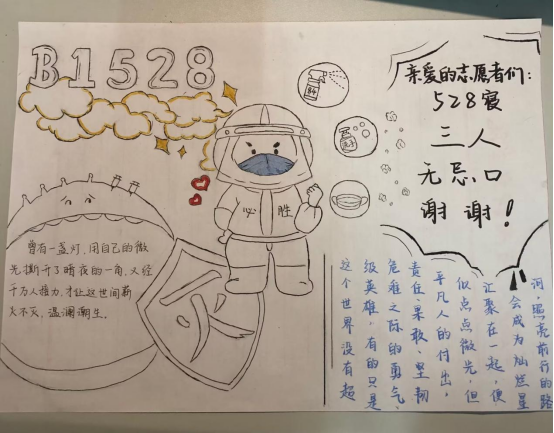 B1528
亲爱的志愿者们:
528寝
三人
无忌口
谢谢!
84
洗手
必胜
曾有一盏灯,用自己的微
光撕开了暗夜的一角,又经
千万人接力,才让这世间薪
火不灭,温澜潮生。
灭
这个世界没有超
级英雄,有的只是
危难之际的勇气、
责任、果敢、坚韧
平凡人的付出,
似点点微光,但
汇聚在一起,便
会成为灿然星
河,照亮前行的路